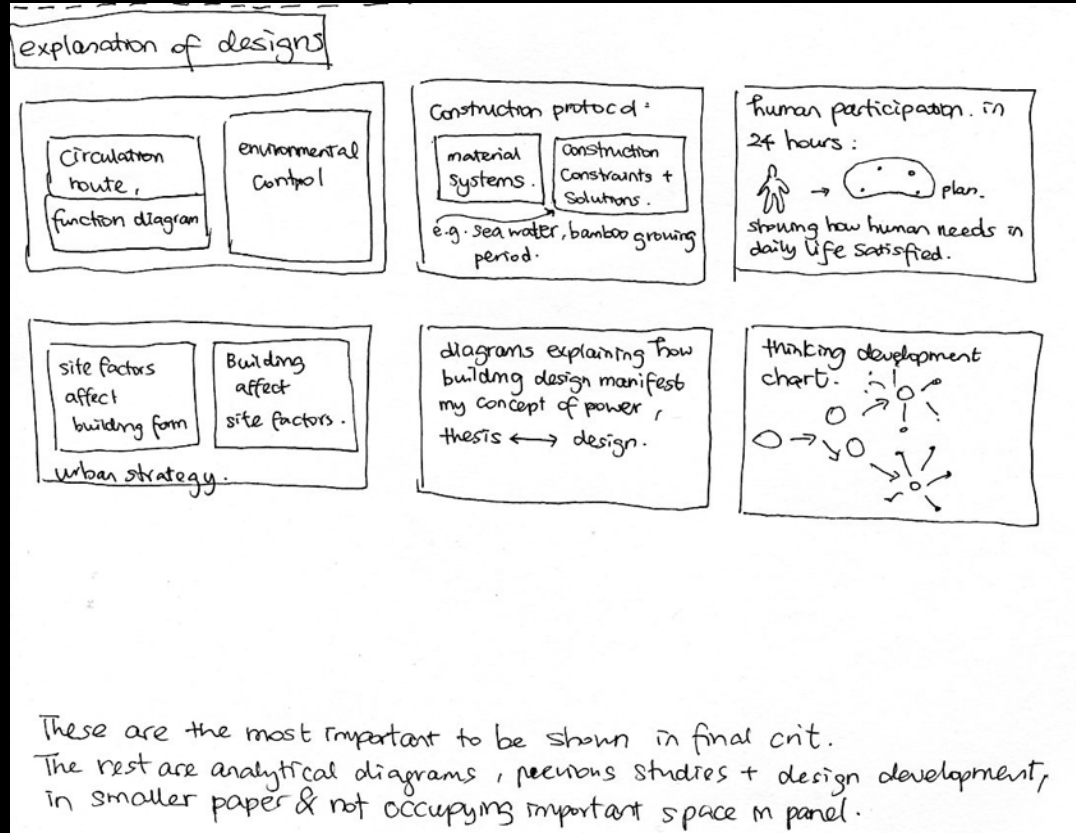 explanation of designs
circulation
route,
function diagram
environmental
control
Construction protocol:
material
systems.
construction
constraints +
solutions.
e.g. sea water, bamboo growing
period.
human participation. in
24 hours:
plan.
showing how human needs in
daily life satisfied.
site factors
affect
building form
Building
affect
site factors.
urban strategy.
diagrams explaining how
building design manifest
my concept of power,
thesis ↔ design.
thinking development
chart.
These are the most important to be shown in final crit.
The rest are analytical diagrams, previous studies + design development,
in smaller paper & not occupying important space in panel.